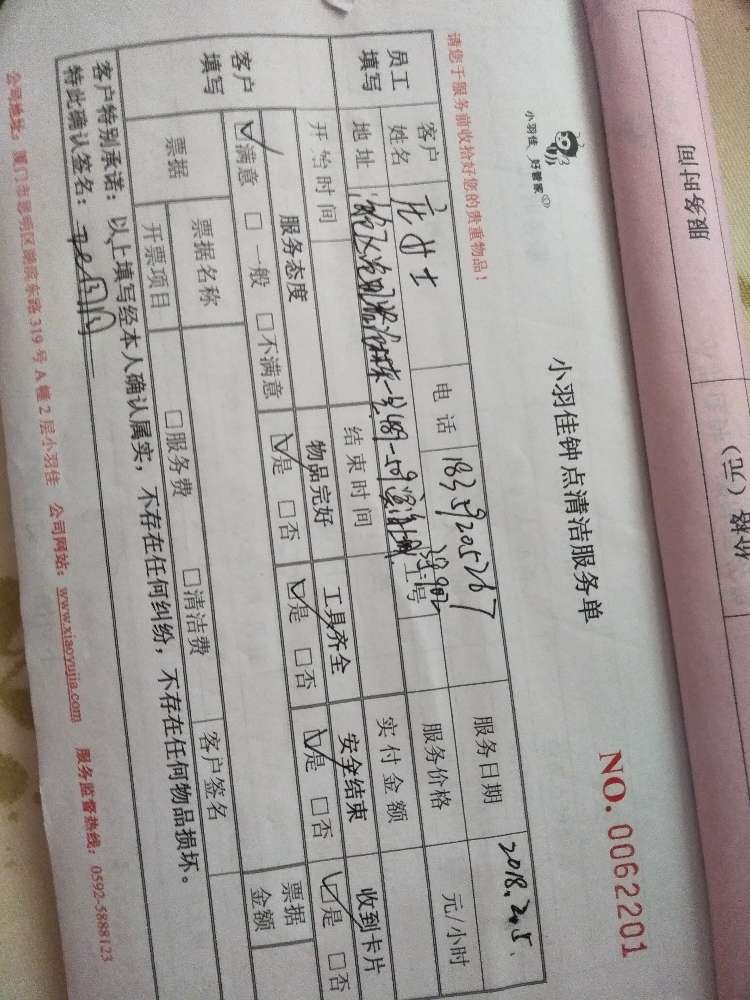 服务时间
价格（元）
小羽佳 好管家
小羽佳钟点清洁服务单
NO. 0062201
请您于服务前收拾好您的贵重物品！
员工填写 客户姓名 女士 电话 18359205267 服务日期 2018.2.5.
地址 工号 服务价格 元/小时
开始时间 结束时间 实付金额
客户填写 服务态度 物品完好 工具齐全 安全结束 收到卡片
☑满意 □一般 □不满意 ☑是 □否 ☑是 □否 ☑是 □否 ☑是 □否
票据 票据名称 客户签名 票据金额
开票项目 □服务费 □清洁费
客户特别承诺：以上填写经本人确认属实，不存在任何纠纷，不存在任何物品损坏。
特此确认签名：
公司地址：厦门市思明区湖滨东路 319 号 A 幢 2 层小羽佳 公司网站：www.xiaoyujia.com 服务监督热线：0592-5888123